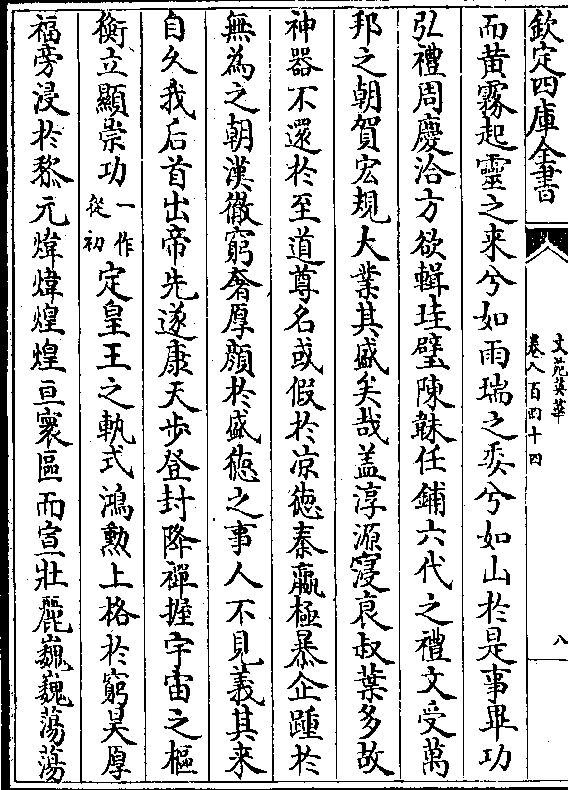 欽定四庫全書
文苑英華
卷八百四十四
八
而黄霧起靈之来兮如雨瑞之委兮如山於是事畢功
弘禮周慶洽方欲輯珪璧陳韎任鋪六代之禮文受萬
邦之朝賀宏規大業其盛矣哉蓋淳源寖衰叔葉多故
神器不還於至道尊名或假於凉徳秦嬴極暴企踵於
無為之朝漢徹窮奢厚顔於盛徳之事人不見義其来
自久我后首出帝先遂康天步登封降禪握宇宙之樞
衡立顯崇功一作從初定皇王之軌式鴻勲上格於窮昊厚
福旁浸於黎元煒煒煌煌亘寰區而宣壯麗巍巍蕩蕩